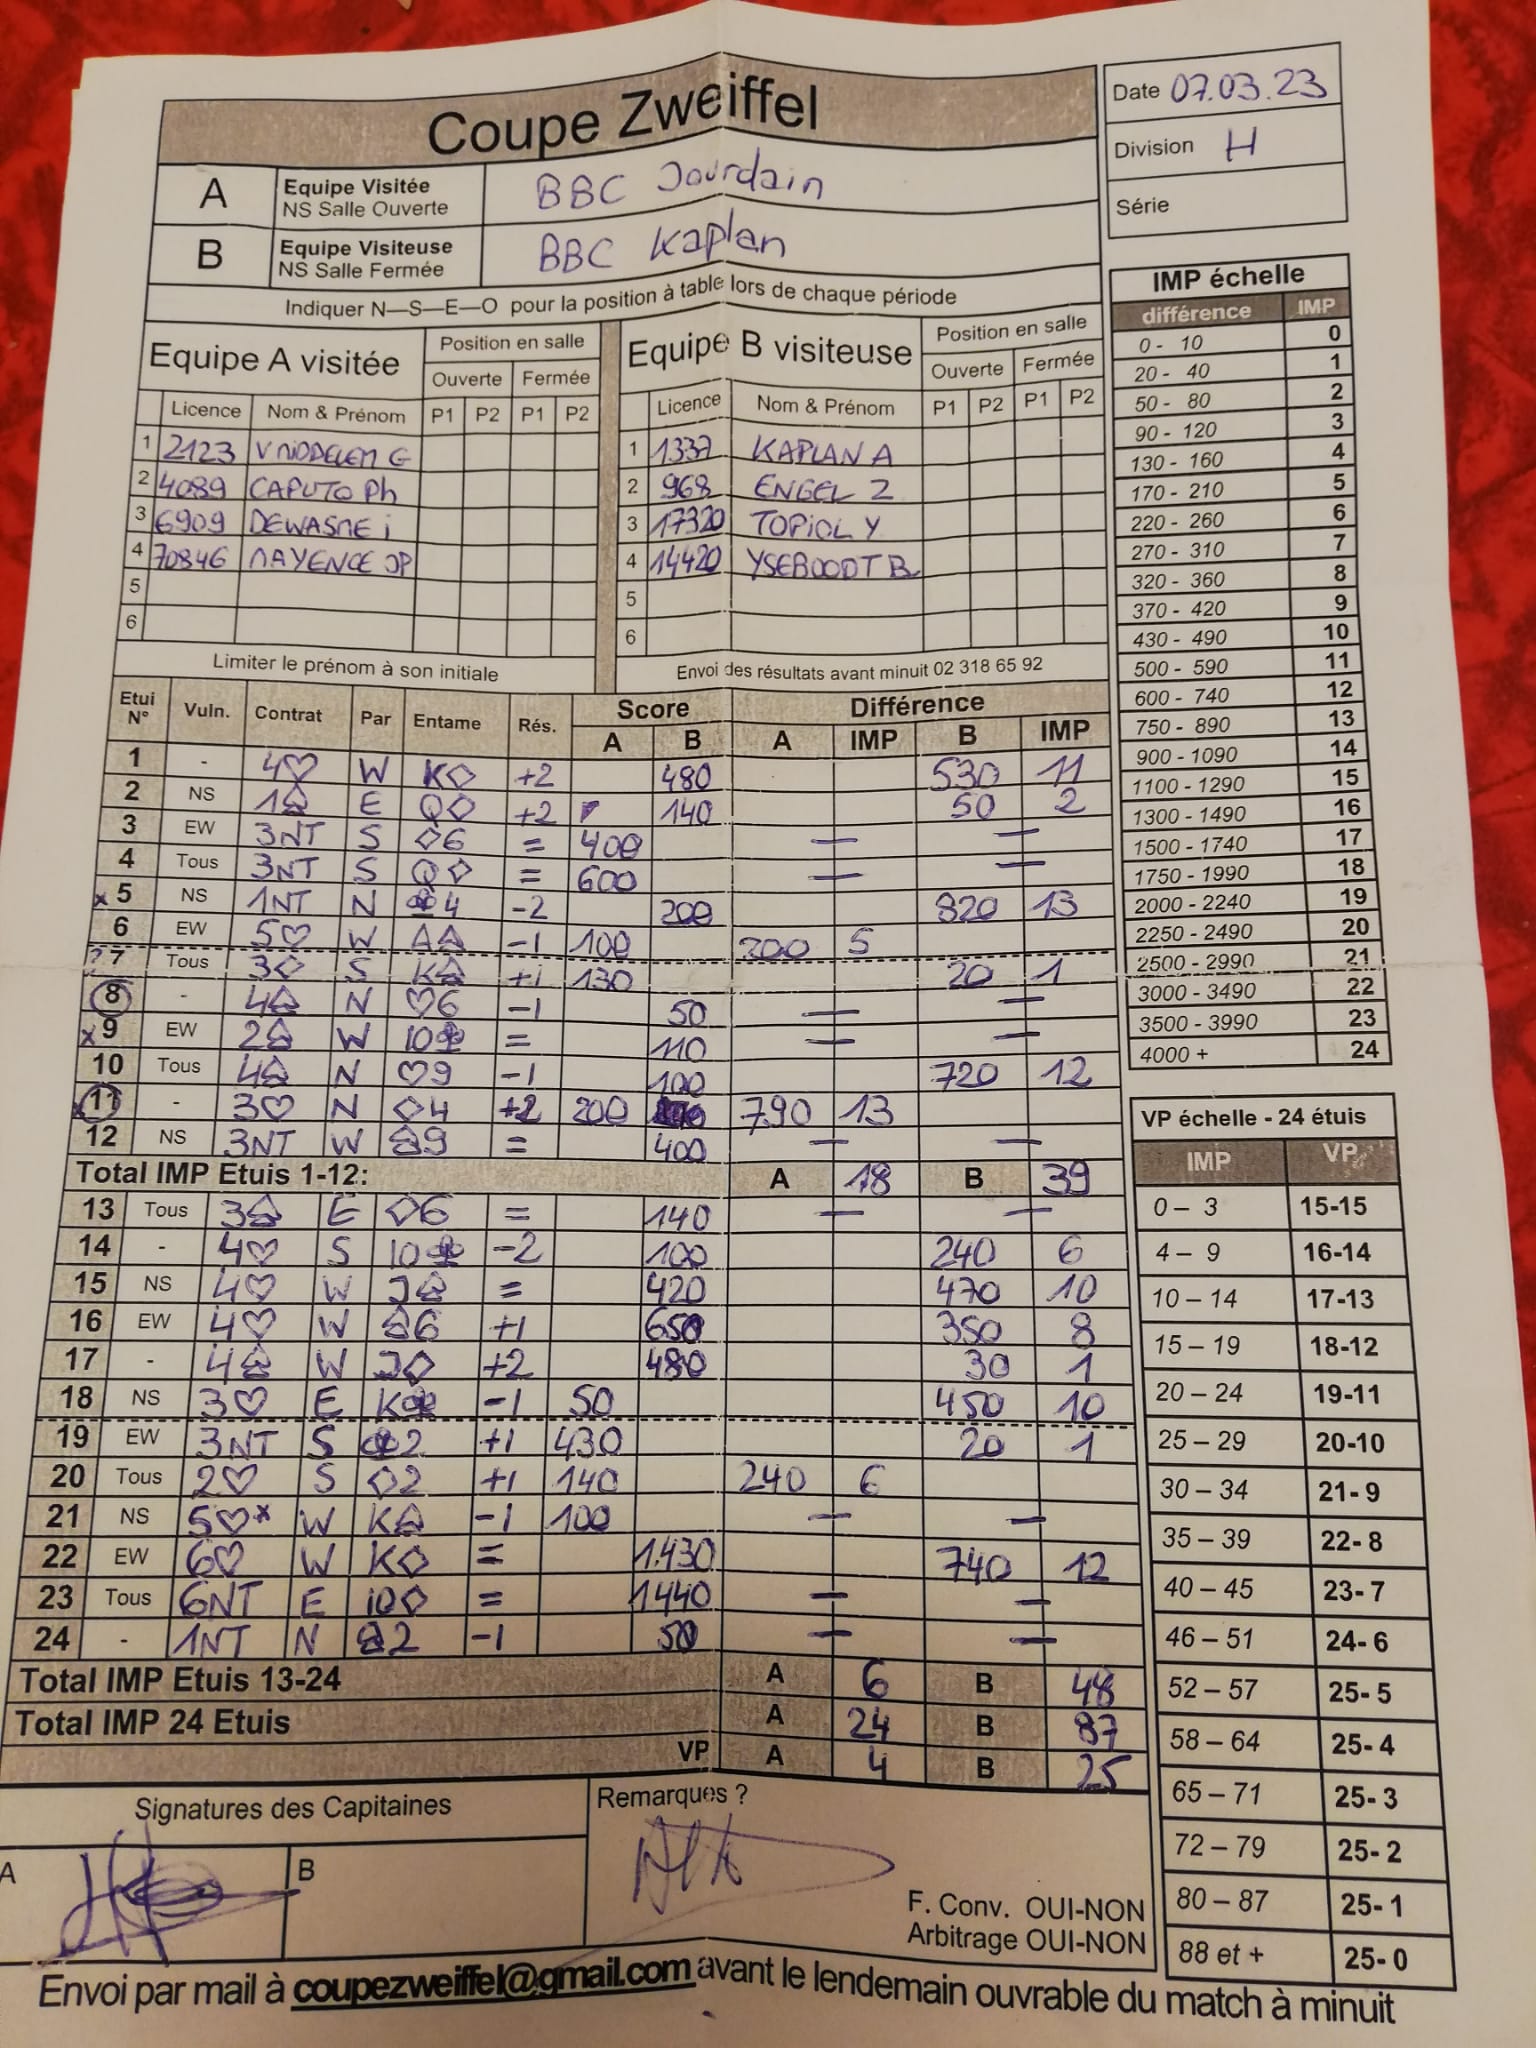 Coupe Zweiffel
Date 07.03.23
Division H
Série
A Equipe Visitée NS Salle Ouverte BBC Jourdain
B Equipe Visiteuse NS Salle Fermée BBC Kaplan
Indiquer N—S—E—O pour la position à table lors de chaque période
Equipe A visitée Position en salle Equipe B visiteuse Position en salle
Ouverte Fermée Ouverte Fermée
Licence Nom & Prénom P1 P2 P1 P2 Licence Nom & Prénom P1 P2 P1 P2
1 2123 1 1337 KAPLAN A
2 4089 CAPUTO Ph 2 968 ENGEL Z
3 6909 DEWASME i 3 17320 TOPIOL Y
4 70846 MAYENCE JP 4 14420 YSEBOODT B
5 5
6 6
Limiter le prénom à son initiale Envoi des résultats avant minuit 02 318 65 92
Etui N° Vuln. Contrat Par Entame Rés. Score Différence
A B A IMP B IMP
1 - 4♡ W K♢ +2 480 530 11
2 NS 1♤ E Q♢ +2 140 50 2
3 EW 3NT S ♢6 = 400 — —
4 Tous 3NT S Q♢ = 600 — —
x 5 NS 1NT N ♣4 -2 200 820 13
6 EW 5♡ W A♤ -1 100 200 5
?7 Tous 3♢ S K♤ +1 130 20 1
8 - 4♤ N ♡6 -1 50 — —
x 9 EW 2♤ W 10♣ = 110 — —
10 Tous 4♤ N ♡9 -1 100 720 12
x 11 - 3♡ N ♢4 +2 200 790 13
12 NS 3NT W ♤9 = 400 — —
Total IMP Etuis 1-12: A 18 B 39
13 Tous 3♤ E ♢6 = 140 — —
14 - 4♡ S 10♣ -2 100 240 6
15 NS 4♡ W J♤ = 420 470 10
16 EW 4♡ W ♤6 +1 650 350 8
17 - 4♤ W J♢ +2 480 30 1
18 NS 3♡ E K♣ -1 50 450 10
19 EW 3NT S ♣2 +1 430 20 1
20 Tous 2♡ S ♢2 +1 140 240 6
21 NS 5♡* W K♤ -1 100 — —
22 EW 6♡ W K♢ = 1.430 740 12
23 Tous 6NT E 10♢ = 1440 — —
24 - 1NT N ♤2 -1 50 — —
Total IMP Etuis 13-24 A 6 B 48
Total IMP 24 Etuis A 24 B 87
VP A 4 B 25
Signatures des Capitaines
A B
Remarques ?
F. Conv. OUI-NON
Arbitrage OUI-NON
Envoi par mail à coupezweiffel@gmail.com avant le lendemain ouvrable du match à minuit
IMP échelle
différence IMP
0 - 10 0
20 - 40 1
50 - 80 2
90 - 120 3
130 - 160 4
170 - 210 5
220 - 260 6
270 - 310 7
320 - 360 8
370 - 420 9
430 - 490 10
500 - 590 11
600 - 740 12
750 - 890 13
900 - 1090 14
1100 - 1290 15
1300 - 1490 16
1500 - 1740 17
1750 - 1990 18
2000 - 2240 19
2250 - 2490 20
2500 - 2990 21
3000 - 3490 22
3500 - 3990 23
4000 + 24
VP échelle - 24 étuis
IMP VP
0 – 3 15-15
4 – 9 16-14
10 – 14 17-13
15 – 19 18-12
20 – 24 19-11
25 – 29 20-10
30 – 34 21- 9
35 – 39 22- 8
40 – 45 23- 7
46 – 51 24- 6
52 – 57 25- 5
58 – 64 25- 4
65 – 71 25- 3
72 – 79 25- 2
80 – 87 25- 1
88 et + 25- 0